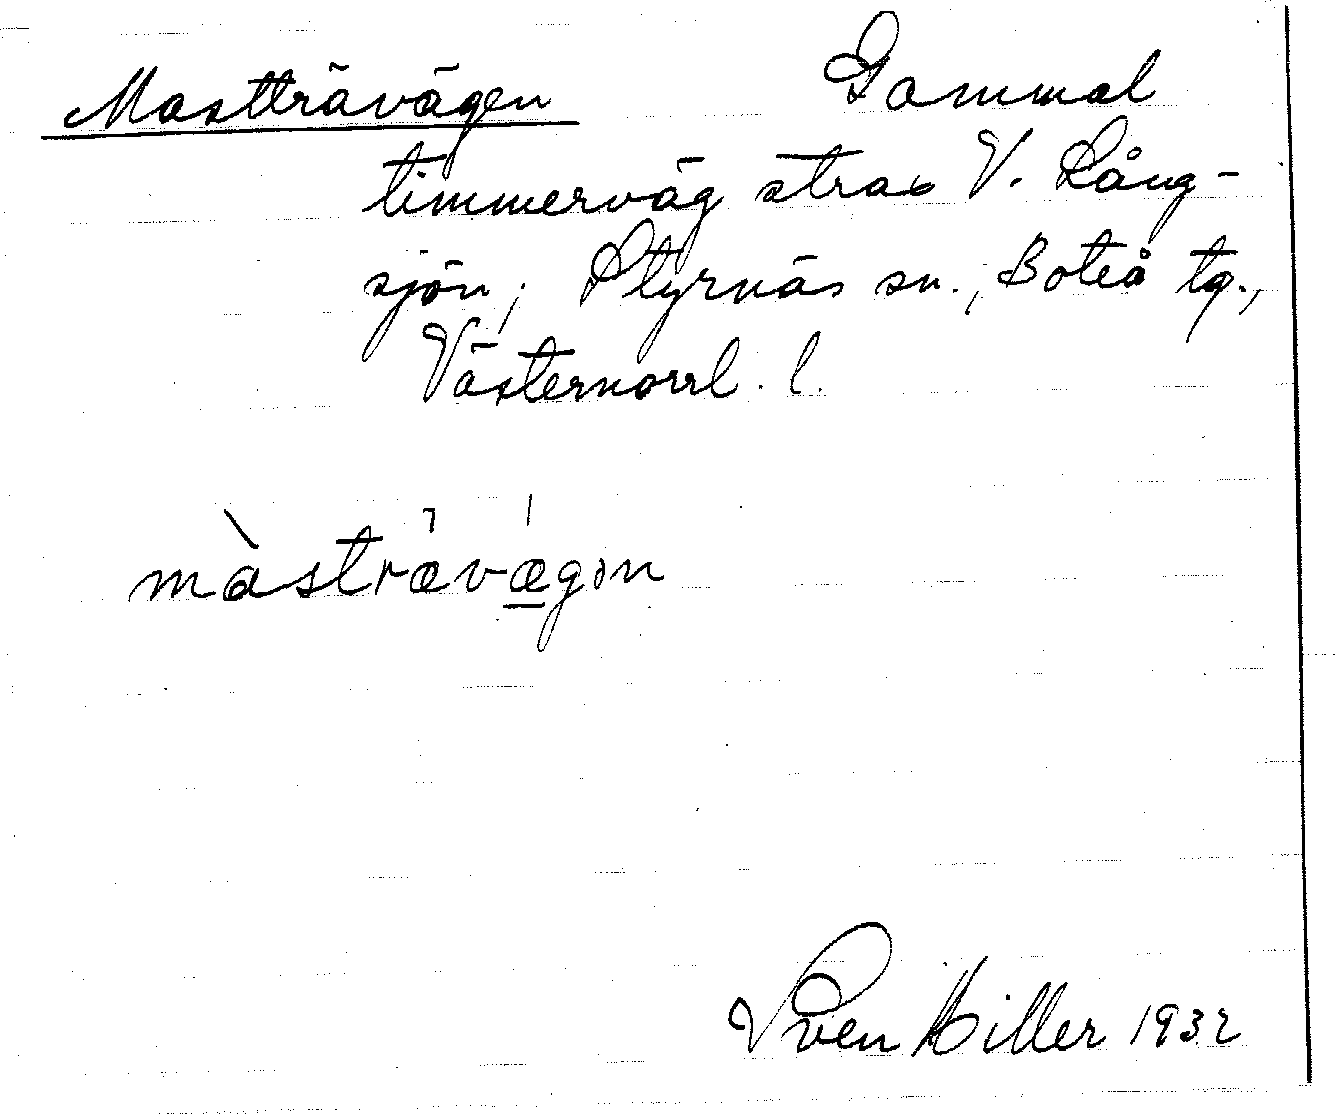 Mastträvägen Gammal
timmerväg strax V. Lång-
sjön; Styrnäs sn., Boteå tg.,
Västernorrl. l.
màstrævægən
Sven Hiller 1932